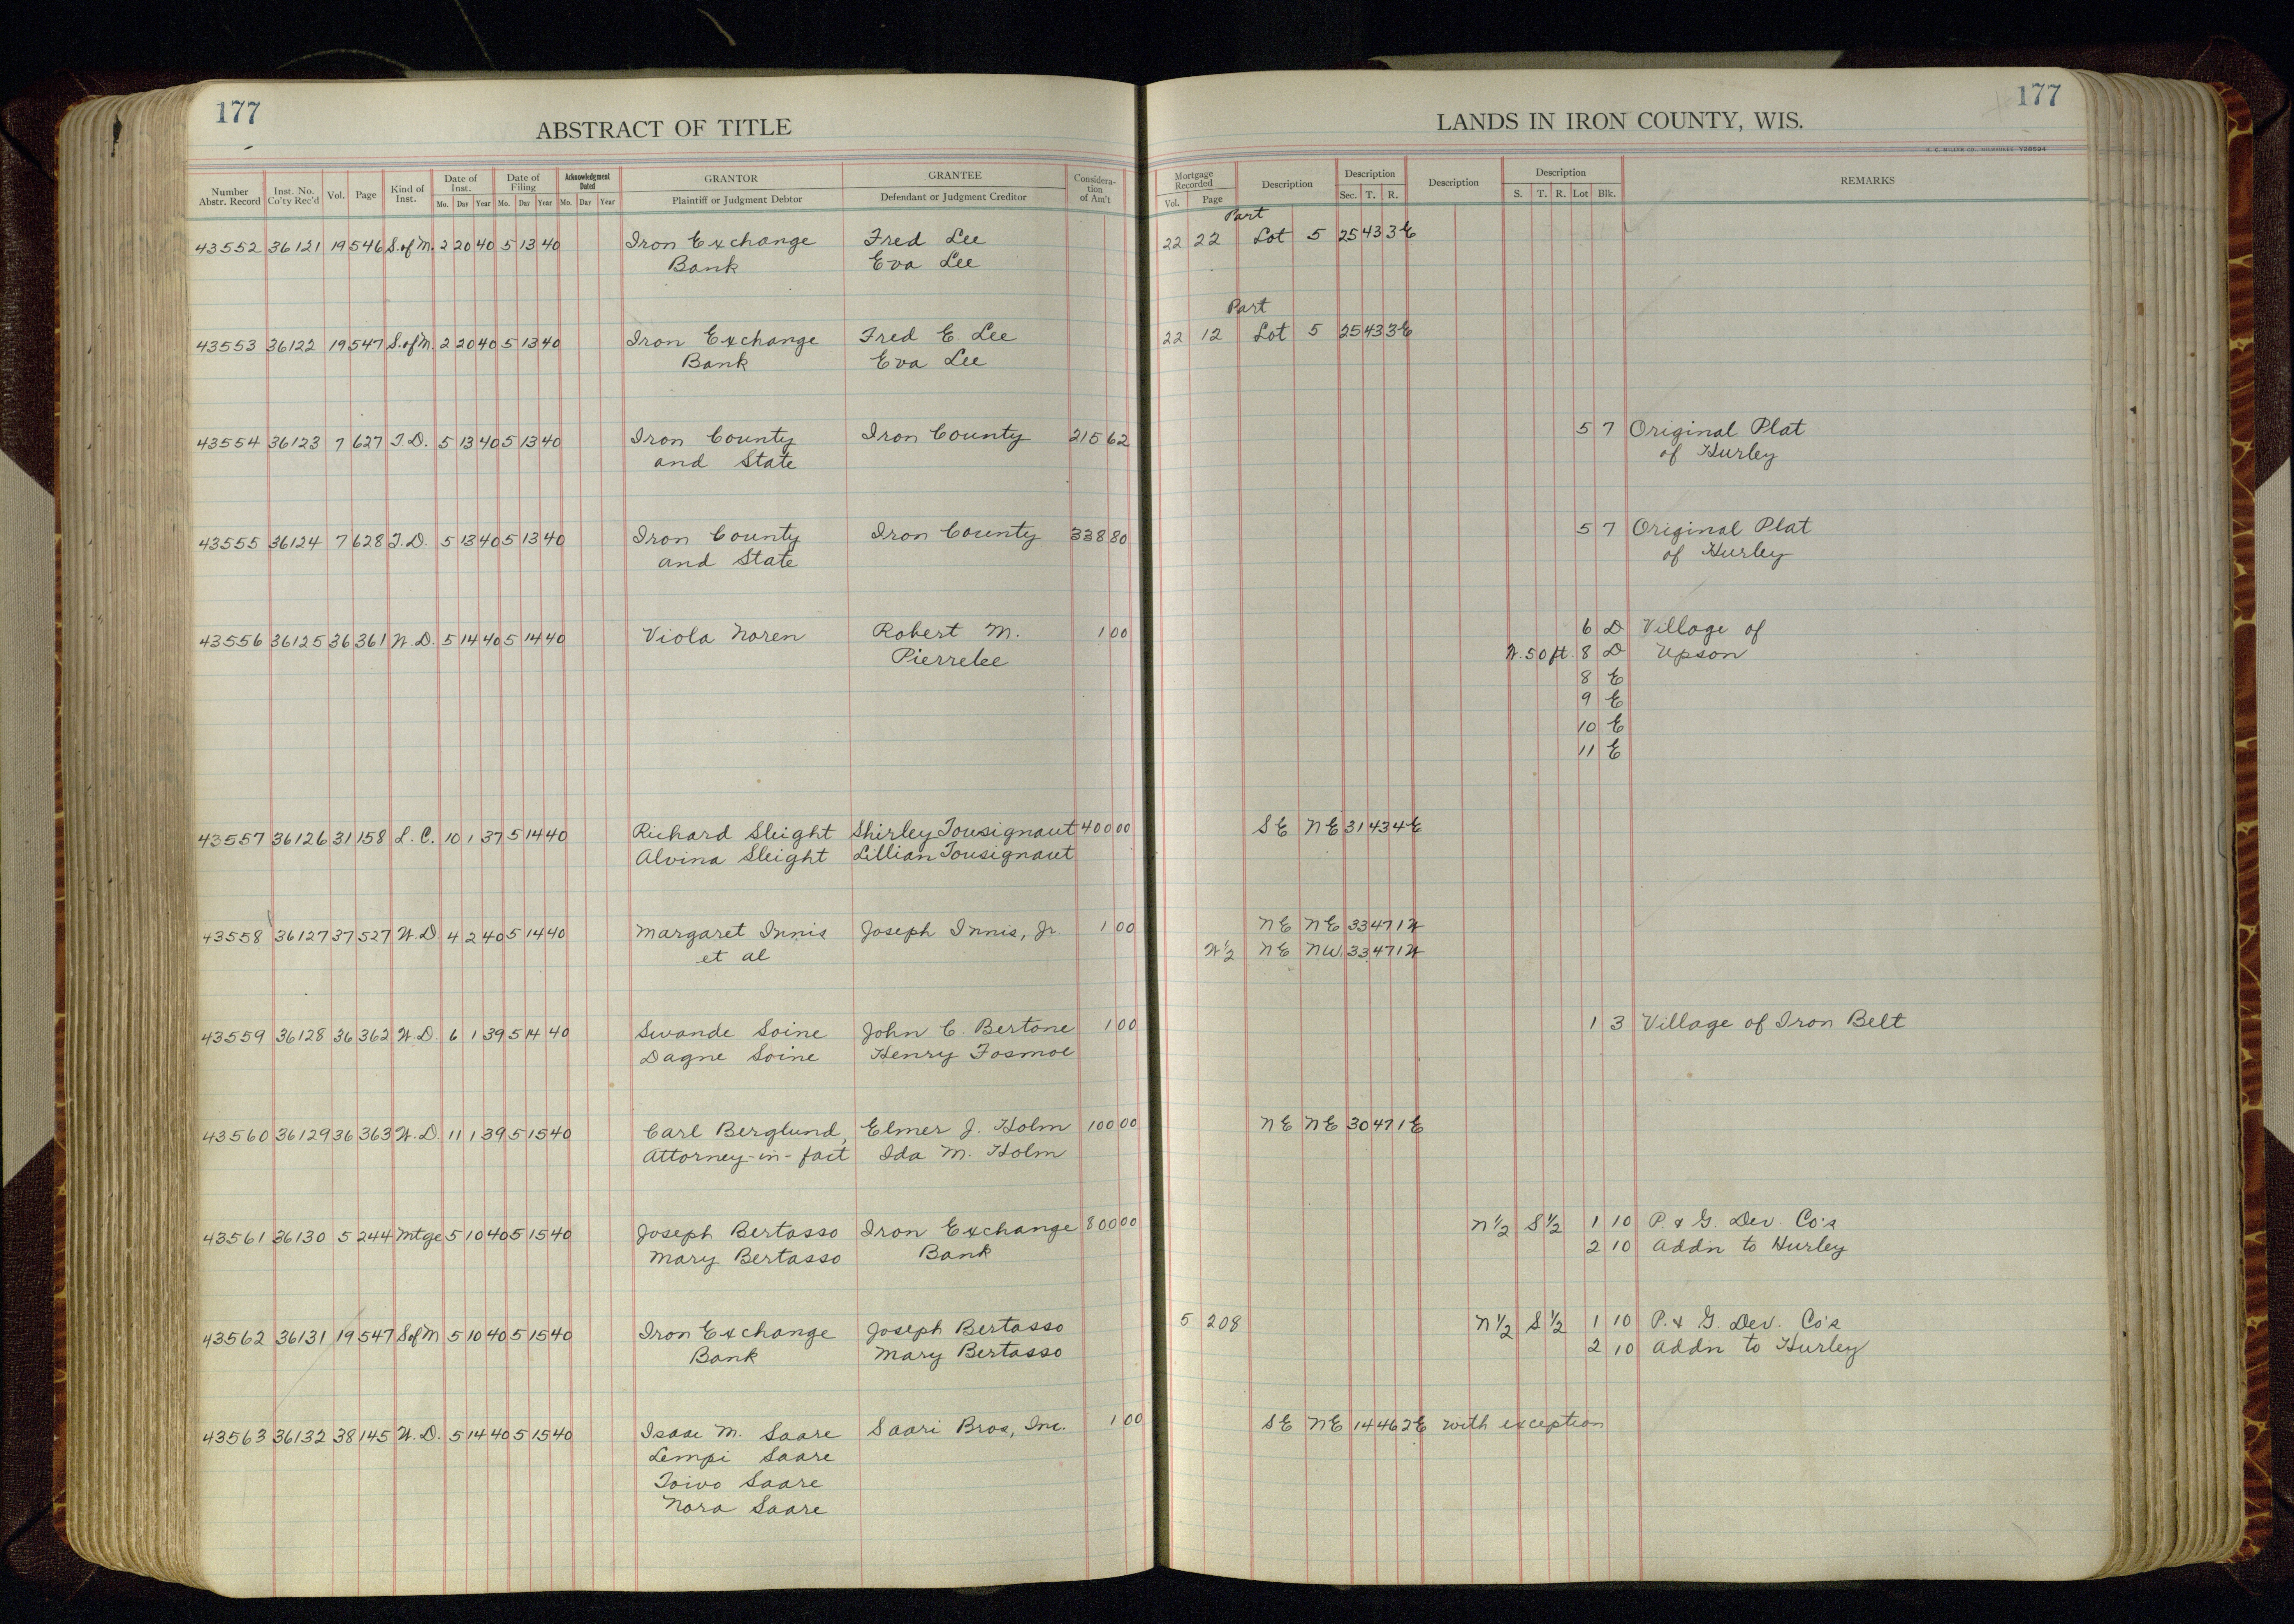 177
ABSTRACT OF TITLE
LANDS IN IRON COUNTY, WIS.
177
H. C. MILLER CO., MILWAUKEE
Number Abstr. Record Inst. No. Co'ty Rec'd Vol. Page Kind of Inst. Date of Inst. Mo. Day Year Date of Filing Mo. Day Year Acknowledgment Dated Mo. Day Year GRANTOR Plaintiff or Judgment Debtor GRANTEE Defendant or Judgment Creditor Considera-tion of Am't Mortgage Recorded Vol. Page Description Description Sec. T. R. Description Description S. T. R. Lot Blk. REMARKS
Part
43552 36121 19 546 S.of M. 2 20 40 5 13 40 Iron Exchange Fred Lee 22 22 Lot 5 25 43 3E
Bank Eva Lee
Part
43553 36122 19 547 S.of M. 2 20 40 5 13 40 Iron Exchange Fred E. Lee 22 12 Lot 5 25 43 3E
Bank Eva Lee
43554 36123 7 627 T.D. 5 13 40 5 13 40 Iron County Iron County 215 62 5 7 Original Plat
and State of Hurley
43555 36124 7 628 T.D. 5 13 40 5 13 40 Iron County Iron County 338 80 5 7 Original Plat
and State of Hurley
43556 36125 36 361 W.D. 5 14 40 5 14 40 Viola Noren Robert M. 1 00 6 D Village of
Pierrelee W. 50 ft. 8 D Upson
8 E
9 E
10 E
11 E
43557 36126 31 158 L.C. 10 1 37 5 14 40 Richard Sleight Shirley Tousignaut 400 00 SE NE 31 43 4E
Alvina Sleight Lillian Tousignaut
43558 36127 37 527 W.D. 4 2 40 5 14 40 Margaret Innis Joseph Innis, Jr. 1 00 NE NE 33 47 1W
et al W½ NE NW 33 47 1W
43559 36128 36 362 W.D. 6 1 39 5 14 40 Swande Soine John C. Bertone 1 00 1 3 Village of Iron Belt
Dagne Soine Henry Fosmoe
43560 36129 36 363 W.D. 11 1 39 5 15 40 Carl Berglund, Elmer J. Holm 100 00 NE NE 30 47 1E
Attorney-in-fact Ida M. Holm
43561 36130 5 244 Mtge 5 10 40 5 15 40 Joseph Bertasso Iron Exchange 800 00 N½ S½ 1 10 P. & G. Dev. Co's
Mary Bertasso Bank 2 10 Addn to Hurley
43562 36131 19 547 S of M 5 10 40 5 15 40 Iron Exchange Joseph Bertasso 5 208 N½ S½ 1 10 P. & G. Dev. Co's
Bank Mary Bertasso 2 10 Addn to Hurley
43563 36132 38 145 W.D. 5 14 40 5 15 40 Isaac M. Saare Saari Bros, Inc. 1 00 SE NE 14 46 2E with exception
Lempi Saare
Toivo Saare
Nora Saare